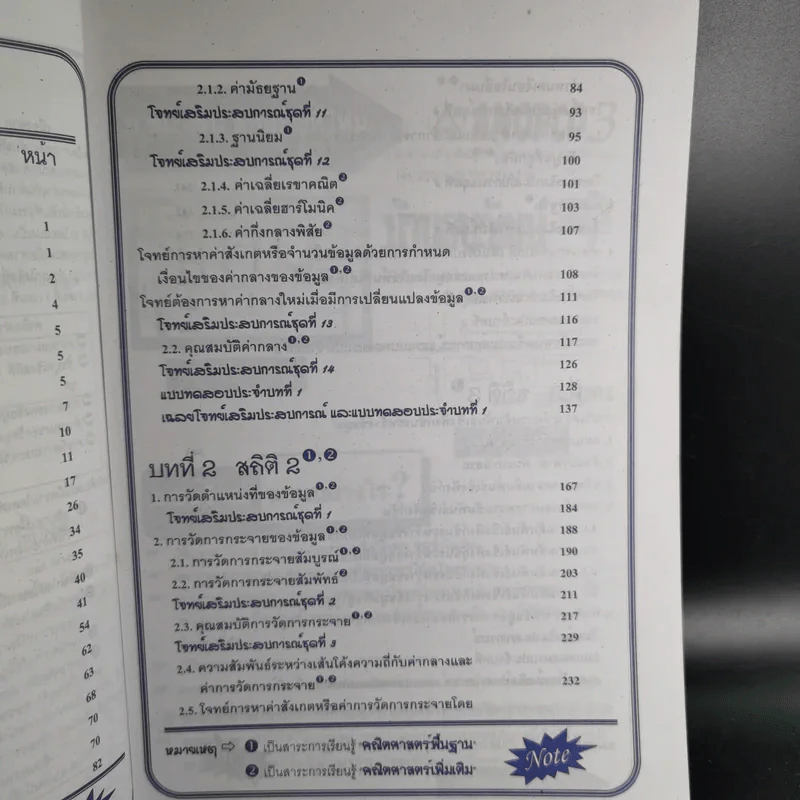 หน้า
1
1
2
4
5
5
5
7
10
11
17
26
34
35
40
41
54
62
63
68
70
70
82
2.1.2. ค่ามัธยฐาน❶ 84
โจทย์เสริมประสบการณ์ชุดที่ 11 93
2.1.3. ฐานนิยม❶ 95
โจทย์เสริมประสบการณ์ชุดที่ 12 100
2.1.4. ค่าเฉลี่ยเรขาคณิต❷ 101
2.1.5. ค่าเฉลี่ยฮาร์โมนิค❷ 103
2.1.6. ค่ากึ่งกลางพิสัย❷ 107
โจทย์การหาค่าสังเกตหรือจำนวนข้อมูลด้วยการกำหนด
เงื่อนไขของค่ากลางของข้อมูล❶,❷ 108
โจทย์ต้องการหาค่ากลางใหม่เมื่อมีการเปลี่ยนแปลงข้อมูล❶,❷ 111
โจทย์เสริมประสบการณ์ชุดที่ 13 116
2.2. คุณสมบัติค่ากลาง❶,❷ 117
โจทย์เสริมประสบการณ์ชุดที่ 14 126
แบบทดสอบประจำบทที่ 1 128
เฉลยโจทย์เสริมประสบการณ์ และแบบทดสอบประจำบทที่ 1 137
บทที่ 2 สถิติ 2❶,❷
1. การวัดตำแหน่งที่ของข้อมูล❶,❷ 167
โจทย์เสริมประสบการณ์ชุดที่ 1 184
2. การวัดการกระจายของข้อมูล❶,❷ 188
2.1. การวัดการกระจายสัมบูรณ์❶,❷ 190
2.2. การวัดการกระจายสัมพัทธ์❷ 203
โจทย์เสริมประสบการณ์ชุดที่ 2 211
2.3. คุณสมบัติการวัดการกระจาย❶,❷ 217
โจทย์เสริมประสบการณ์ชุดที่ 3 229
2.4. ความสัมพันธ์ระหว่างเส้นโค้งความถี่กับค่ากลางและ
ค่าการวัดการกระจาย❶,❷ 232
2.5. โจทย์การหาค่าสังเกตหรือค่าการวัดการกระจายโดย
หมายเหตุ ⇨ ❶ เป็นสาระการเรียนรู้ "คณิตศาสตร์พื้นฐาน"
❷ เป็นสาระการเรียนรู้ "คณิตศาสตร์เพิ่มเติม"
Note